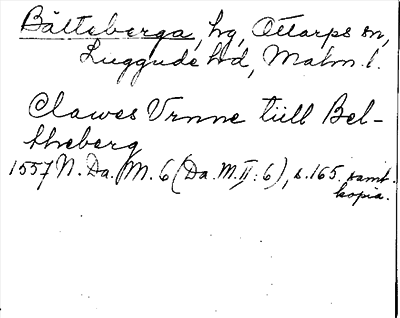 Bälteberga, hg, Ottarps sn,
Luggude hd, Malm. l.
Clawes Vrnne till Bel-
theberg
1557 N. Da. M. 6 (Da. M. II: 6), s. 165. samt.
kopia.